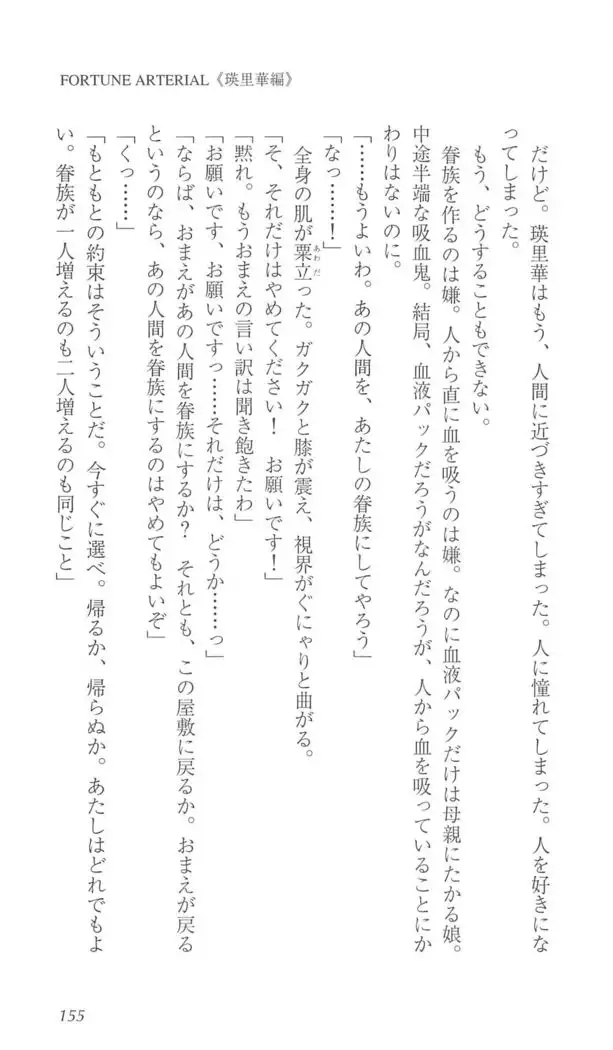 FORTUNE ARTERIAL《瑛里華編》
だけど。瑛里華はもう、人間に近づきすぎてしまった。人に憧れてしまった。人を好きにな
ってしまった。
もう、どうすることもできない。
眷族を作るのは嫌。人から直に血を吸うのは嫌。なのに血液パックだけは母親にたかる娘。
中途半端な吸血鬼。結局、血液パックだろうがなんだろうが、人から血を吸っていることにか
わりはないのに。
「……もうよいわ。あの人間を、あたしの眷族にしてやろう」
「なっ……！」
全身の肌が粟立った。ガクガクと膝が震え、視界がぐにゃりと曲がる。
あわだ
「そ、それだけはやめてください！　お願いです！」
「黙れ。もうおまえの言い訳は聞き飽きたわ」
「お願いです、お願いですっ……それだけは、どうか……っ」
「ならば、おまえがあの人間を眷族にするか？　それとも、この屋敷に戻るか。おまえが戻る
というのなら、あの人間を眷族にするのはやめてもよいぞ」
「くっ……」
「もともとの約束はそういうことだ。今すぐに選べ。帰るか、帰らぬか。あたしはどれでもよ
い。眷族が一人増えるのも二人増えるのも同じこと」
155